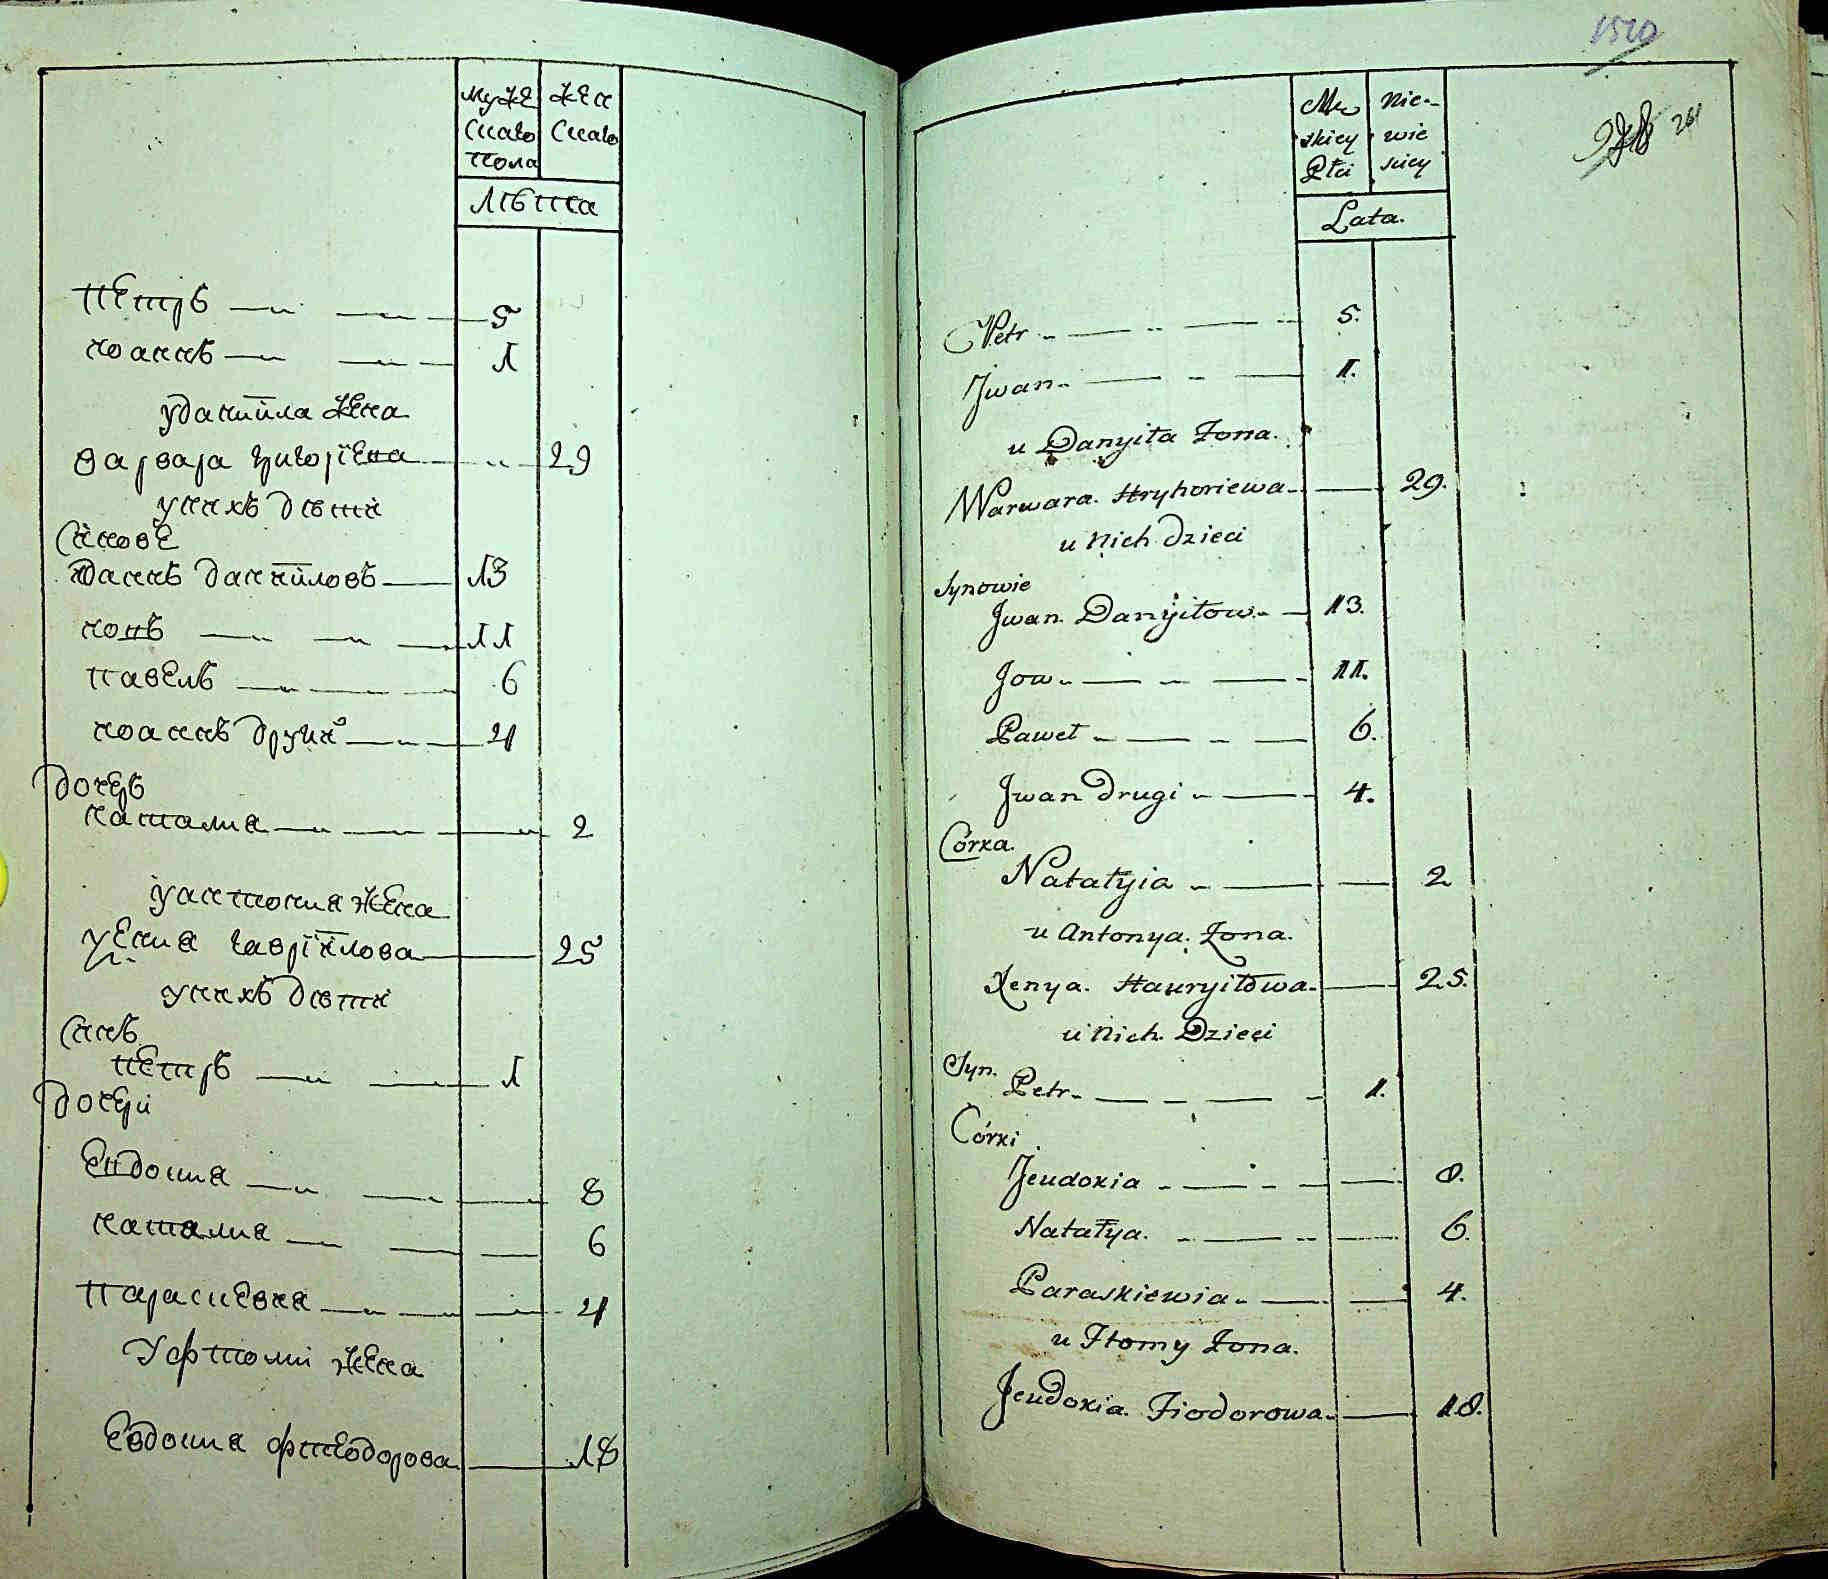 Муже Жен
скаго скаго
пола
Лѣта
Петръ 5
Иоаннъ 1
у Даниила жена
Варвара Григориева 29
у нихъ дѣти
Синове
Иоаннъ Данииловъ 13
Иовъ 11
Павелъ 6
Иоаннъ други 4
дочерь
Наталия 2
у Антония жена
Ксения Гавриилова 25
у нихъ дѣти
Синъ
Петръ 1
дочери
Евдокия 8
Наталия 6
Параскевия 4
У Фтоми жена
Евдокия Фтеодорова 18
1510
261
Mę Nie-
skiey wie
Płci skiey
Lata.
Petr 5.
Jwan 1.
u Danyiła Żona.
Warwara. Hryhoriewa 29.
u nich dzieci
Synowie
Jwan. Danyiłow 13.
Jow 11.
Paweł 6.
Jwan drugi 4.
Córka.
Natałyia 2
u Antonya. Żona.
Xenya. Hauryiłowa 25.
u nich. Dzieci
Syn.
Petr 1.
Córki
Jeudoxia 8.
Natałya. 6.
Paraskiewia 4.
u Ftomy Żona.
Jeudoxia. Fiodorowa 18.